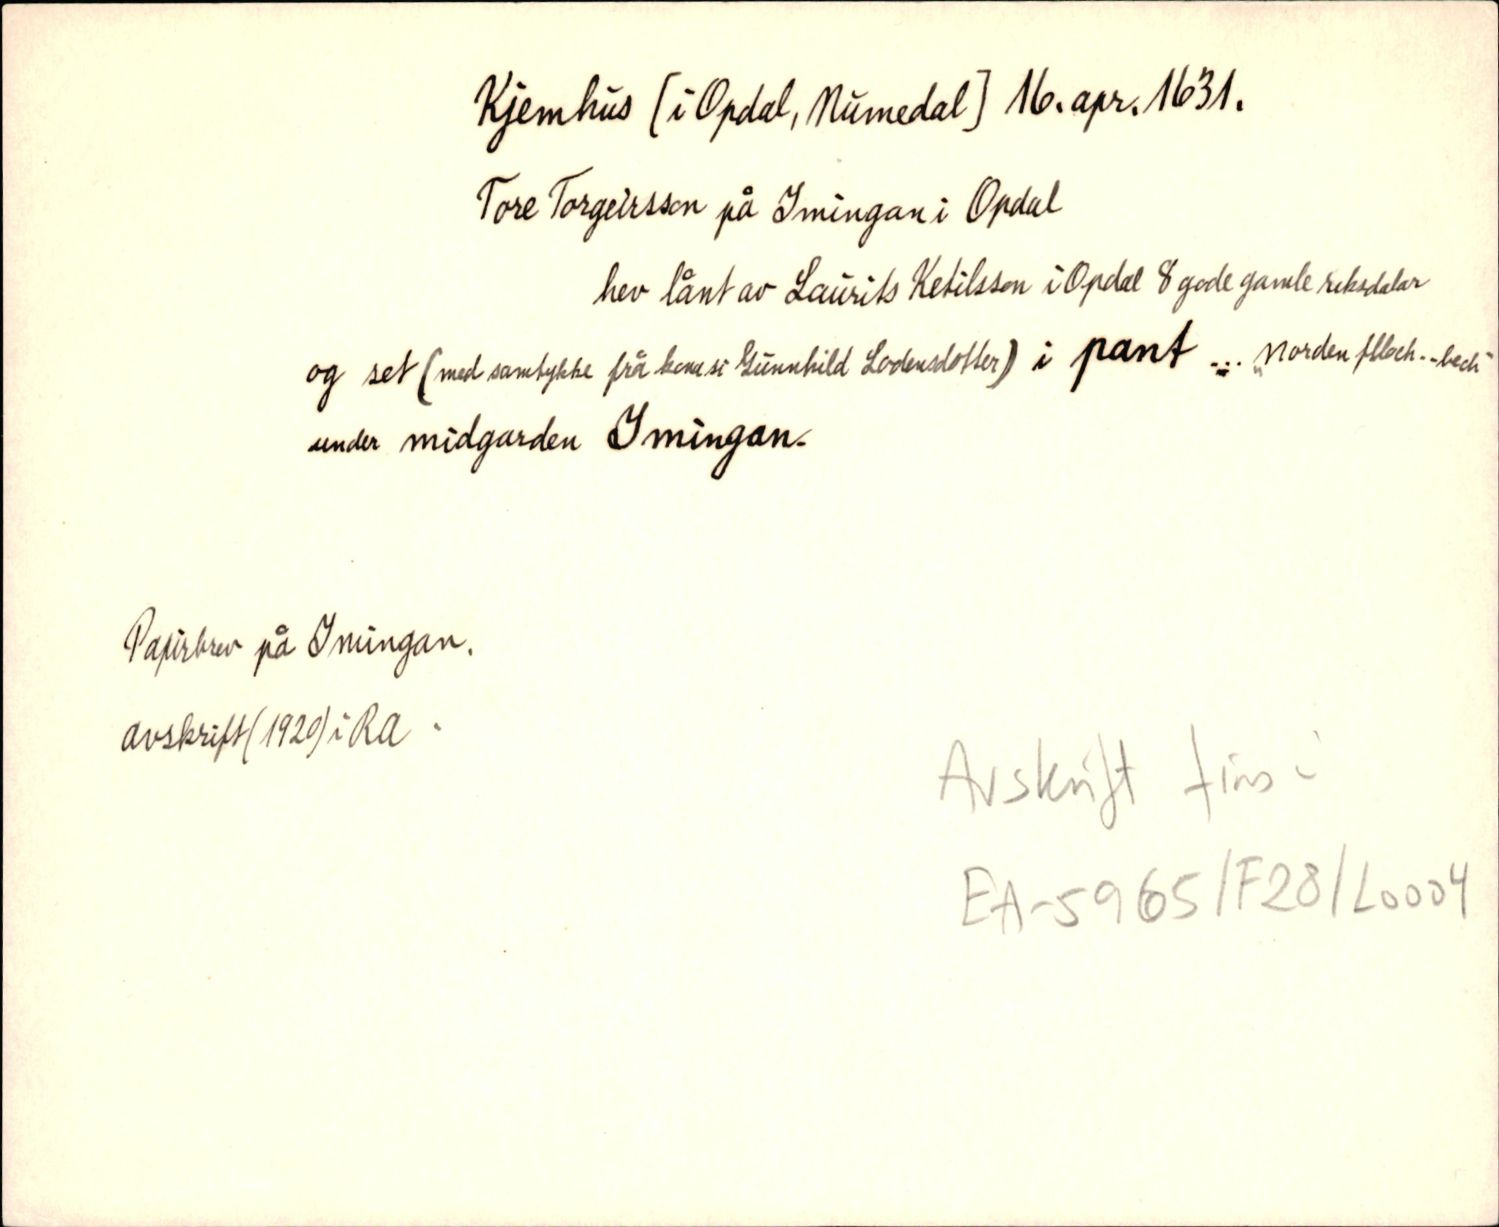 Kjemhus [i Opdal, Numedal] 16. apr. 1631.
Tore Torgeirsson på Imingan i Opdal
hev lånt av Laurits Ketilsson i Opdal 8 gode gamle riksdalar
og set (med samtykke frå kona si Gunnhild Lodensdotter) i pant ... "Norden
under midgarden Imingan.
Papirbrev på Imingan.
Avskrift (1920) i RA.
Avskrift fins i
EA-5965/F28/L0004